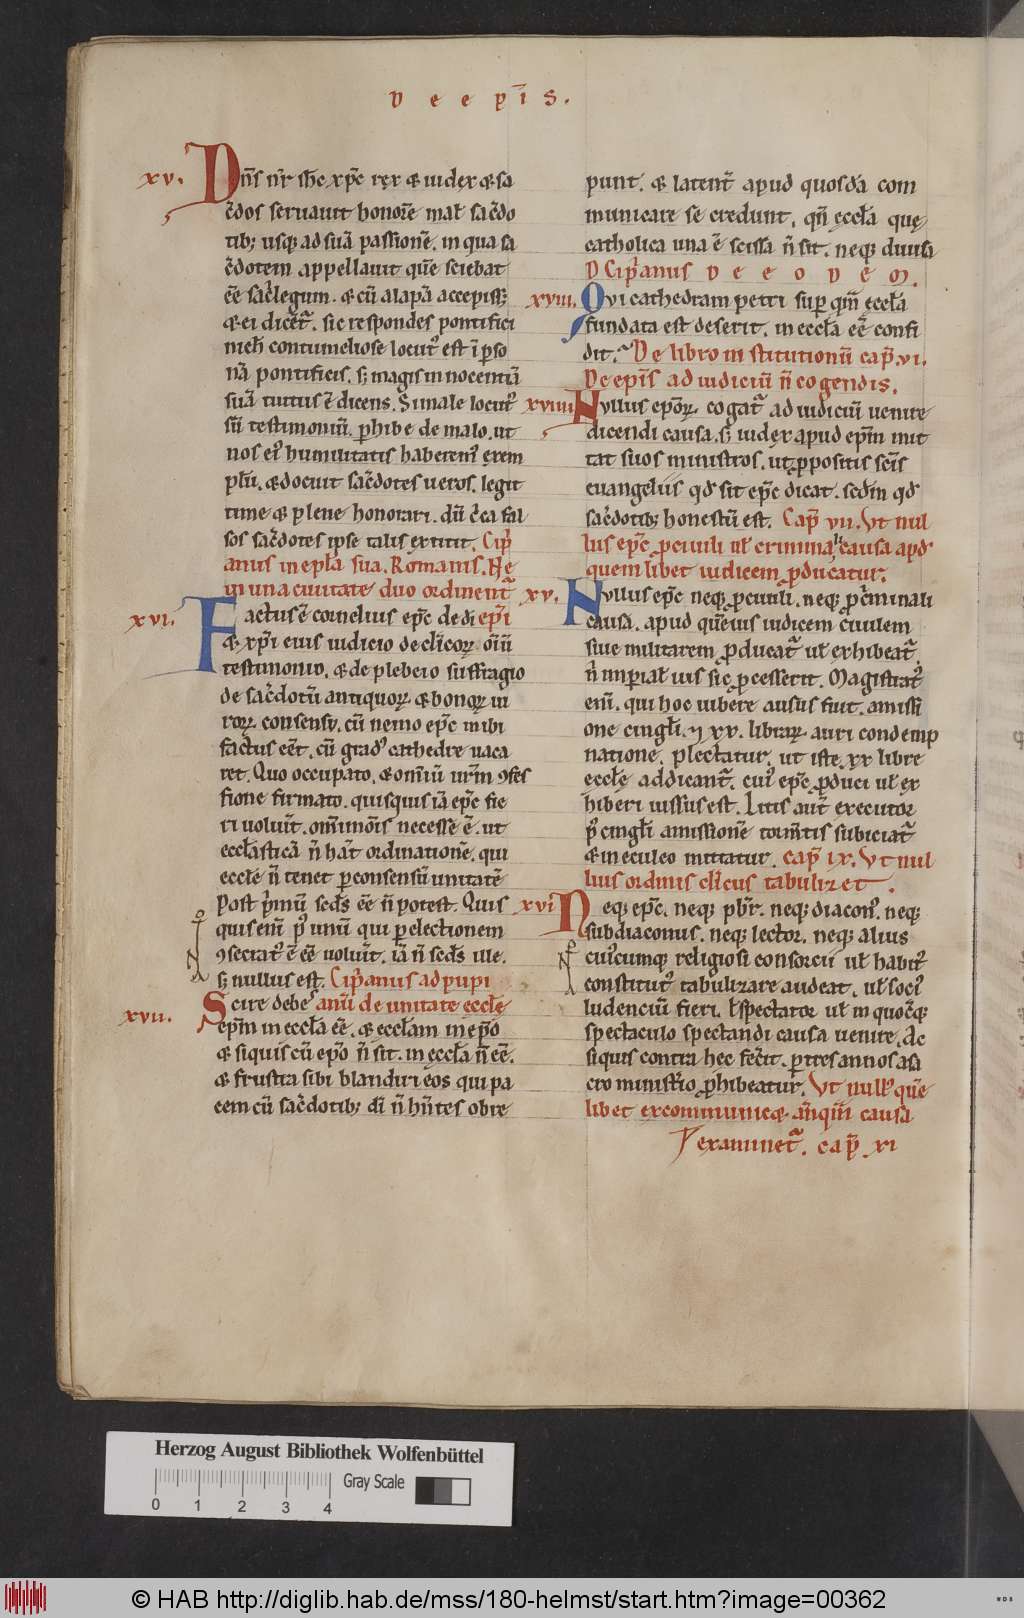 De ep̄is.
xv. Dn̄s nr̄ ih̄c xp̄c rex & iudex & sa
c̄dos seruauit honorē mał sac̄do
tib; usq; ad suā passionē. in qua sa
c̄dotem appellauit quē sciebat
ēe sac̄legum. & cū alapā accepiss;
& ei dicēt̄. sic respondes pontifici
nich̄ contumeliose locut᾽ est ī p̄so
nā pontificis. s; magis innocentiā
suā tuitus ē dicens. Si male locut᾽
sū testimoniū perhibe de malo. ut
nos et᾽ humilitatis haberem᾽ exem
plū. & docuit sac̄dotes ueros. legit
time & plene honorari. dū c̄ca fal
sos sac̄dotes ipse talis extitit. Cip̄
anus in epł̄a sua. Romanis. Ne
in una ciuitate duo ordinent̄
xvi. Factus ē cornelius ep̄c de di ep̄i
& xp̄i eius iudicio de cłicoꝝ oīū
testimonio. & de plebeio suffragio
de sac̄dotū antiquoꝝ & bonoꝝ ui
roꝝ consensu. cū nemo ep̄c in ibi
factus eēt. cū grad᾽ cathedre uaca
ret. Quo occupato. & omīū urm̄ ꝯfes
sione firmato. quisquis iā ep̄c fie
ri uoluīt. om̄nnoīs necesse ē. ut
ecclasticā n̄ hāt ordinationē. qui
eccłe n̄ tenet ꝑ consensū unitatē
Post p̄mū sed̄s ēe n̄ potest. Quis
quis enī p᾽ unū qui ꝑ electionem
ꝯsecrat᾽ ē ēe uoluīt. iā n̄ sed̄s ille.
s; nullus est. Cip̄anus ad pupi
anū de unitate eccłe
xvii. Scire debes
ep̄m in eccła ēe. & eccłam in ep̄o
& siquis cū ep̄o n̄ sit. in eccła n̄ ēe.
& frustra sibi blandiri eos qui pa
cem cū sac̄dotib; dī n̄ hn̄tes obre
punt. & latent̄ apud quosdā com
municare se credunt. qn̄ eccła que
catholica una ē scissa n̄ sit. neq; diuisa
Cip̄anus de eodem.
xviii. Qvi cathedram petri sup̄ qm̄ eccła
fundata est deserit. in eccła eē confi
dit. De libro institutionū cap̄. vi.
De ep̄is ad iudiciū n̄ cogendis.
xviiii Nvllus ep̄oꝝ cogat̄ ad iudiciū uenire
dicendi causa. s; iudex apud ep̄m mit
tat suos ministros. ut ꝓpositis sc̄is
euangeliis qd̄ sit ep̄c dicat. sedm̄ qd̄
sac̄dotib; honestū est. Cap̄ vii. Ut nul
lus ep̄c ꝓ ciuili uł criminali causa apd̄
quem libet iudicem ꝓducatur.
xv. Nvllus ep̄c neq; ꝓ ciuili. neq; ꝓ c̄minali
causa. apud quēuis iudicem ciuilem
siue militarem ꝓducat̄ uł exhibeat̄.
n̄ imꝑiał ius sic ꝓcesserit. Magistrat᾽
enī. qui hoc iubere ausus fiut. amissi
one cingłi. ⁊ xv. libraꝝ auri condemp
natione. plectatur. ut iste. xx libre
eccłe addicant̄. cui᾽ ep̄c ꝓduci uł ex
hiberi iussus est. Litis aut̄ executor
p᾽ cingłi amissionē torm̄tis subiciat̄
& in eculeo mittatur. cap̄ ix. Ut nul
lius ordinis cłicus tabulizet.
xvi Neq; ep̄c. neq; pbr̄. neq; diacon᾽. neq;
subdiaconus. neq; lector. neq; alius
cui᾽cumq; religiosi consorcii uł habit᾽
constitut᾽ tabulizare audeat. uł soci᾽
ludenciū fieri. uł spectator uł in quoc̄q;
spectaculo spectandi causa uenire. Ac
siquis contra hec fec̄it. ꝑ tres annos a sa
cro minist̄io ꝓhibeatur. Ut null᾽ quē
libet excommunicæ anq̄m causa
examinet̄. cap̄. xi
Herzog August Bibliothek Wolfenbüttel
0 1 2 3 4 Gray Scale
© HAB http://diglib.hab.de/mss/180-helmst/start.htm?image=00362